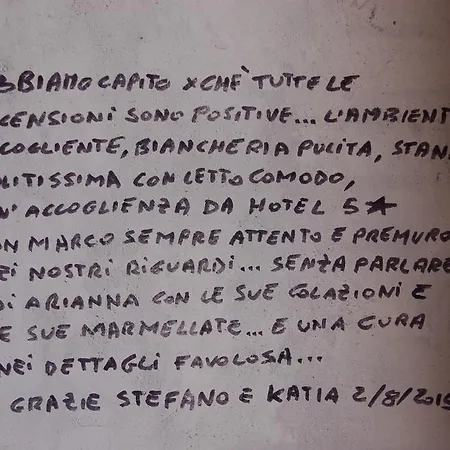 BBIAMO CAPITO XCHÈ TUTTE LE
CENSIONI SONO POSITIVE... L'AMBIENT
COGLIENTE, BIANCHERIA PULITA, STAN
LITISSIMA CON LETTO COMODO,
N' ACCOGLIENZA DA HOTEL 5★
ON MARCO SEMPRE ATTENTO E PREMURO
EI NOSTRI RIGUARDI... SENZA PARLARE
DI ARIANNA CON LE SUE COLAZIONI E
E SUE MARMELLATE... E UNA CURA
NEI DETTAGLI FAVOLOSA...
GRAZIE STEFANO E KATIA 2/8/2019